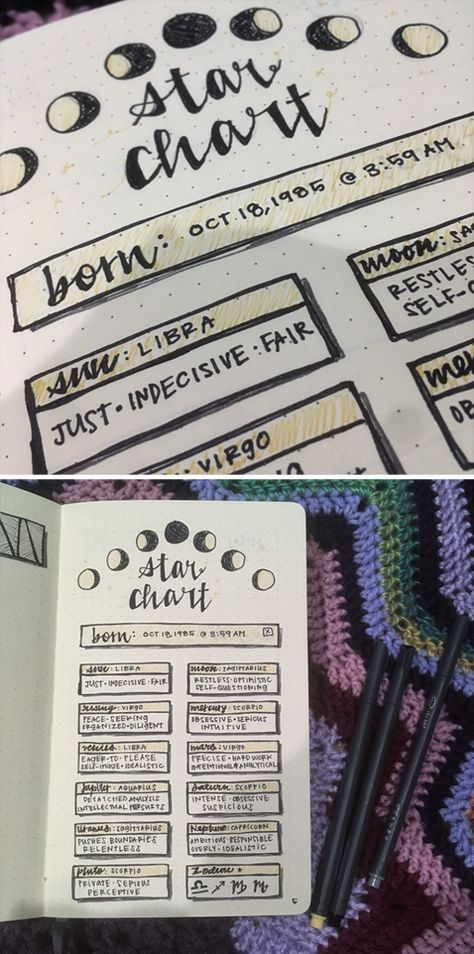 star
chart
born: OCT 18, 1985 @ 3:59 AM
moon: SA
RESTLES
SELF-Q
sun: LIBRA
JUST • INDECISIVE • FAIR
mer
OB
: VIRGO
star
chart
born: OCT 18, 1985 @ 3:59 AM
sun: LIBRA
JUST • INDECISIVE • FAIR
moon: SAGITTARIUS
RESTLESS • OPTIMISTIC
SELF-QUESTIONING
rising: VIRGO
PEACE-SEEKING
ORGANIZED • DILIGENT
mercury: SCORPIO
OBSESSIVE • SERIOUS
INTUITIVE
venus: LIBRA
EAGER-TO-PLEASE
SELF-IMAGE • IDEALISTIC
mars: VIRGO
PRECISE • HARD WORK
INTENTIONAL • ANALYTICAL
Jupiter: AQUARIUS
DETATCHED ANALYSIS
INTELLECTUAL PURSUITS
Saturn: SCORPIO
INTENSE • OBSESSIVE
SUSPICIOUS
Uranus: SAGITTARIUS
PUSHES BOUNDARIES
RELENTLESS
Neptune: CAPRICORN
AMBITIOUS • RESPONSIBLE
OVERLY-IDEALISTIC
pluto: SCORPIO
PRIVATE • SERIOUS
PERCEPTIVE
Zodiac ★
♎ ♐ ♏ ♍
5